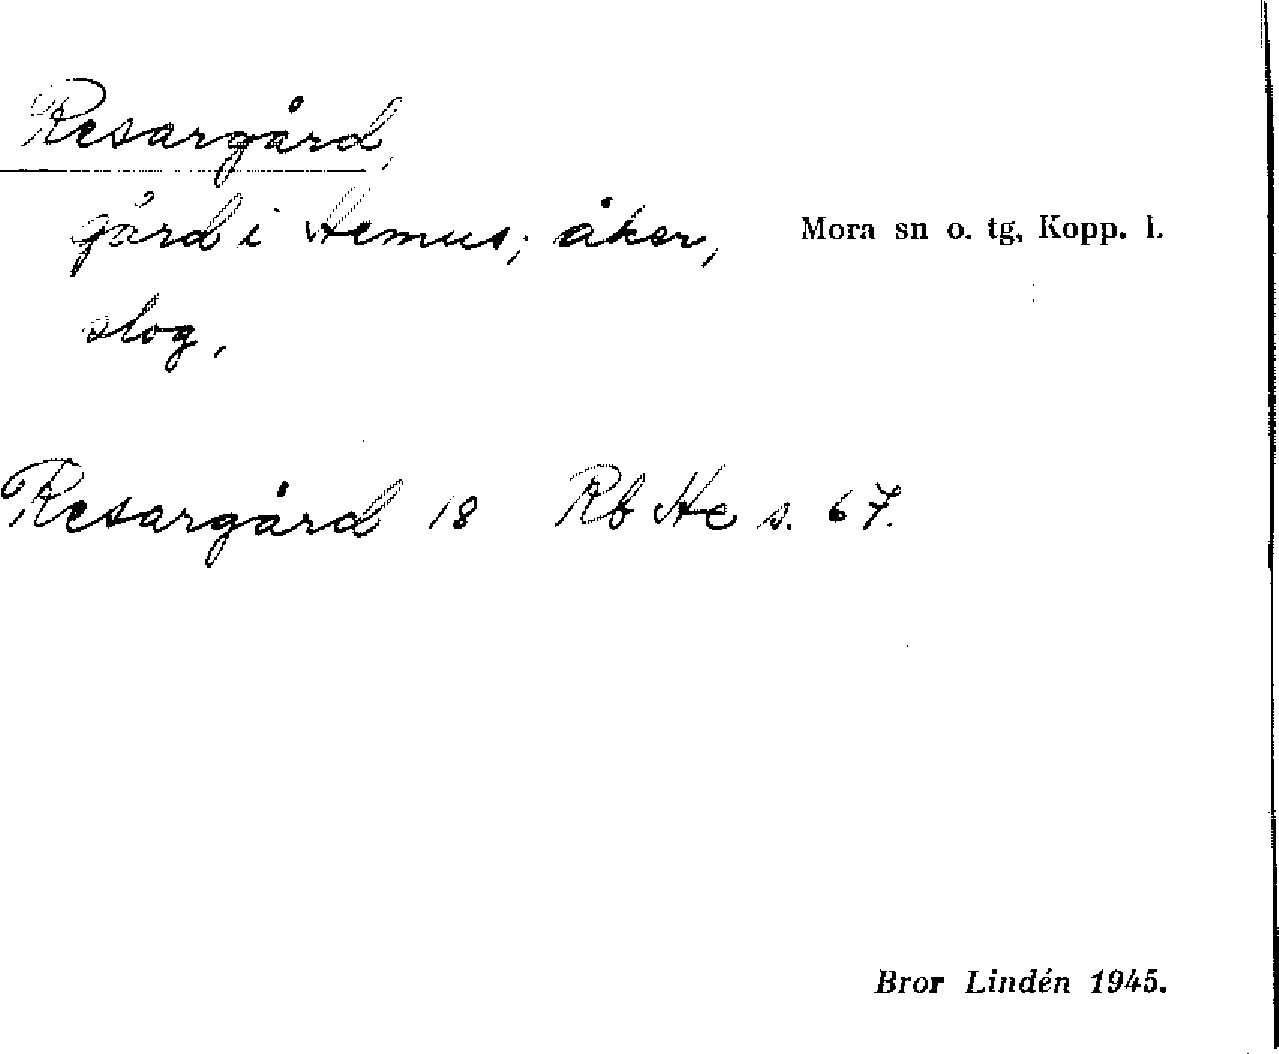 Resargård,
gård i Hemus; åker,
Mora sn o. tg, Kopp. l.
slog,
Resargård 18 Rb He s. 67.
Bror Lindén 1945.